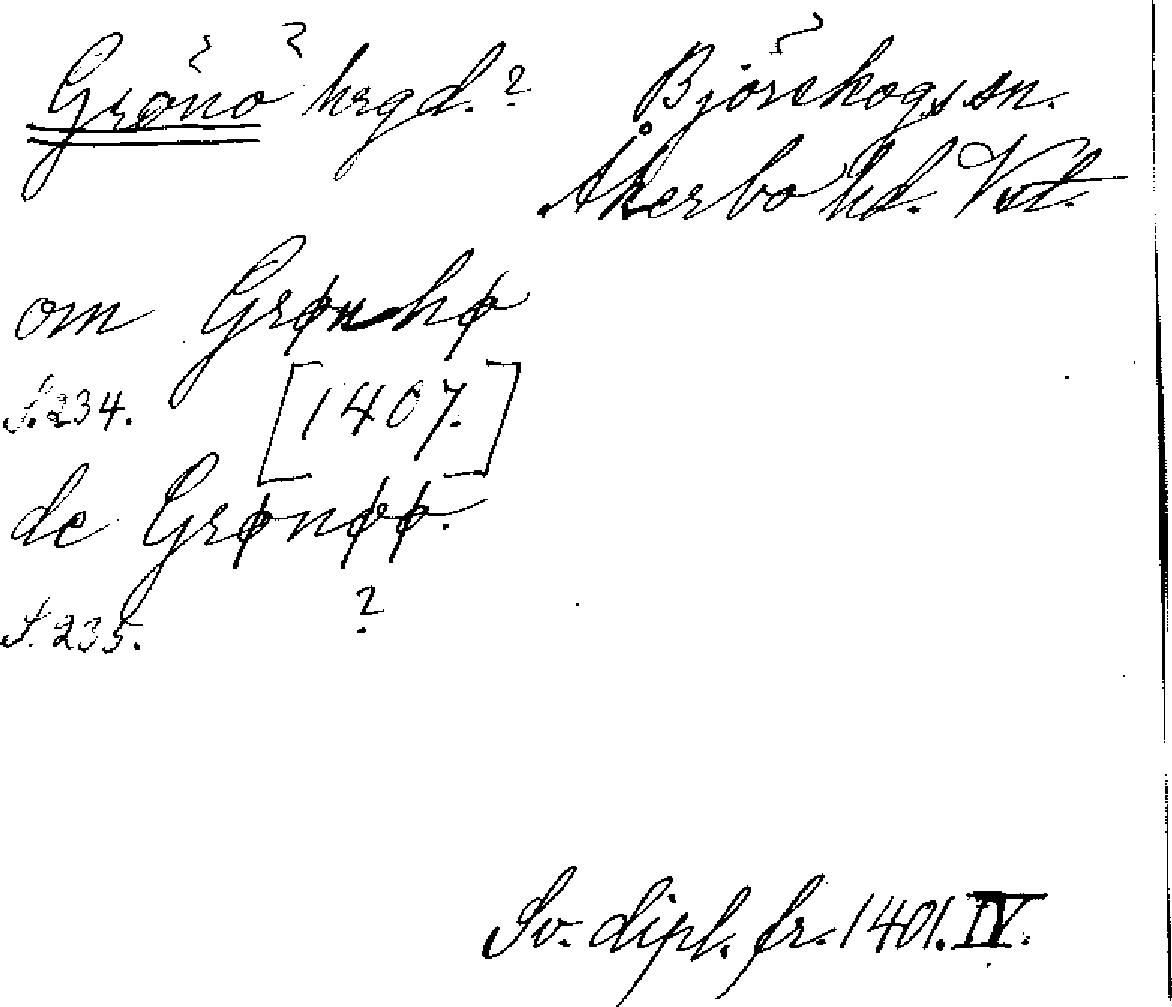 Grönö hrgd.? Björskogs sn.
Åkerbo hd. Vstl.
om Grønhø
S. 234. [1407.]
de Grønøø.
S. 235. ?
Sv. dipl. fr. 1401. IV.